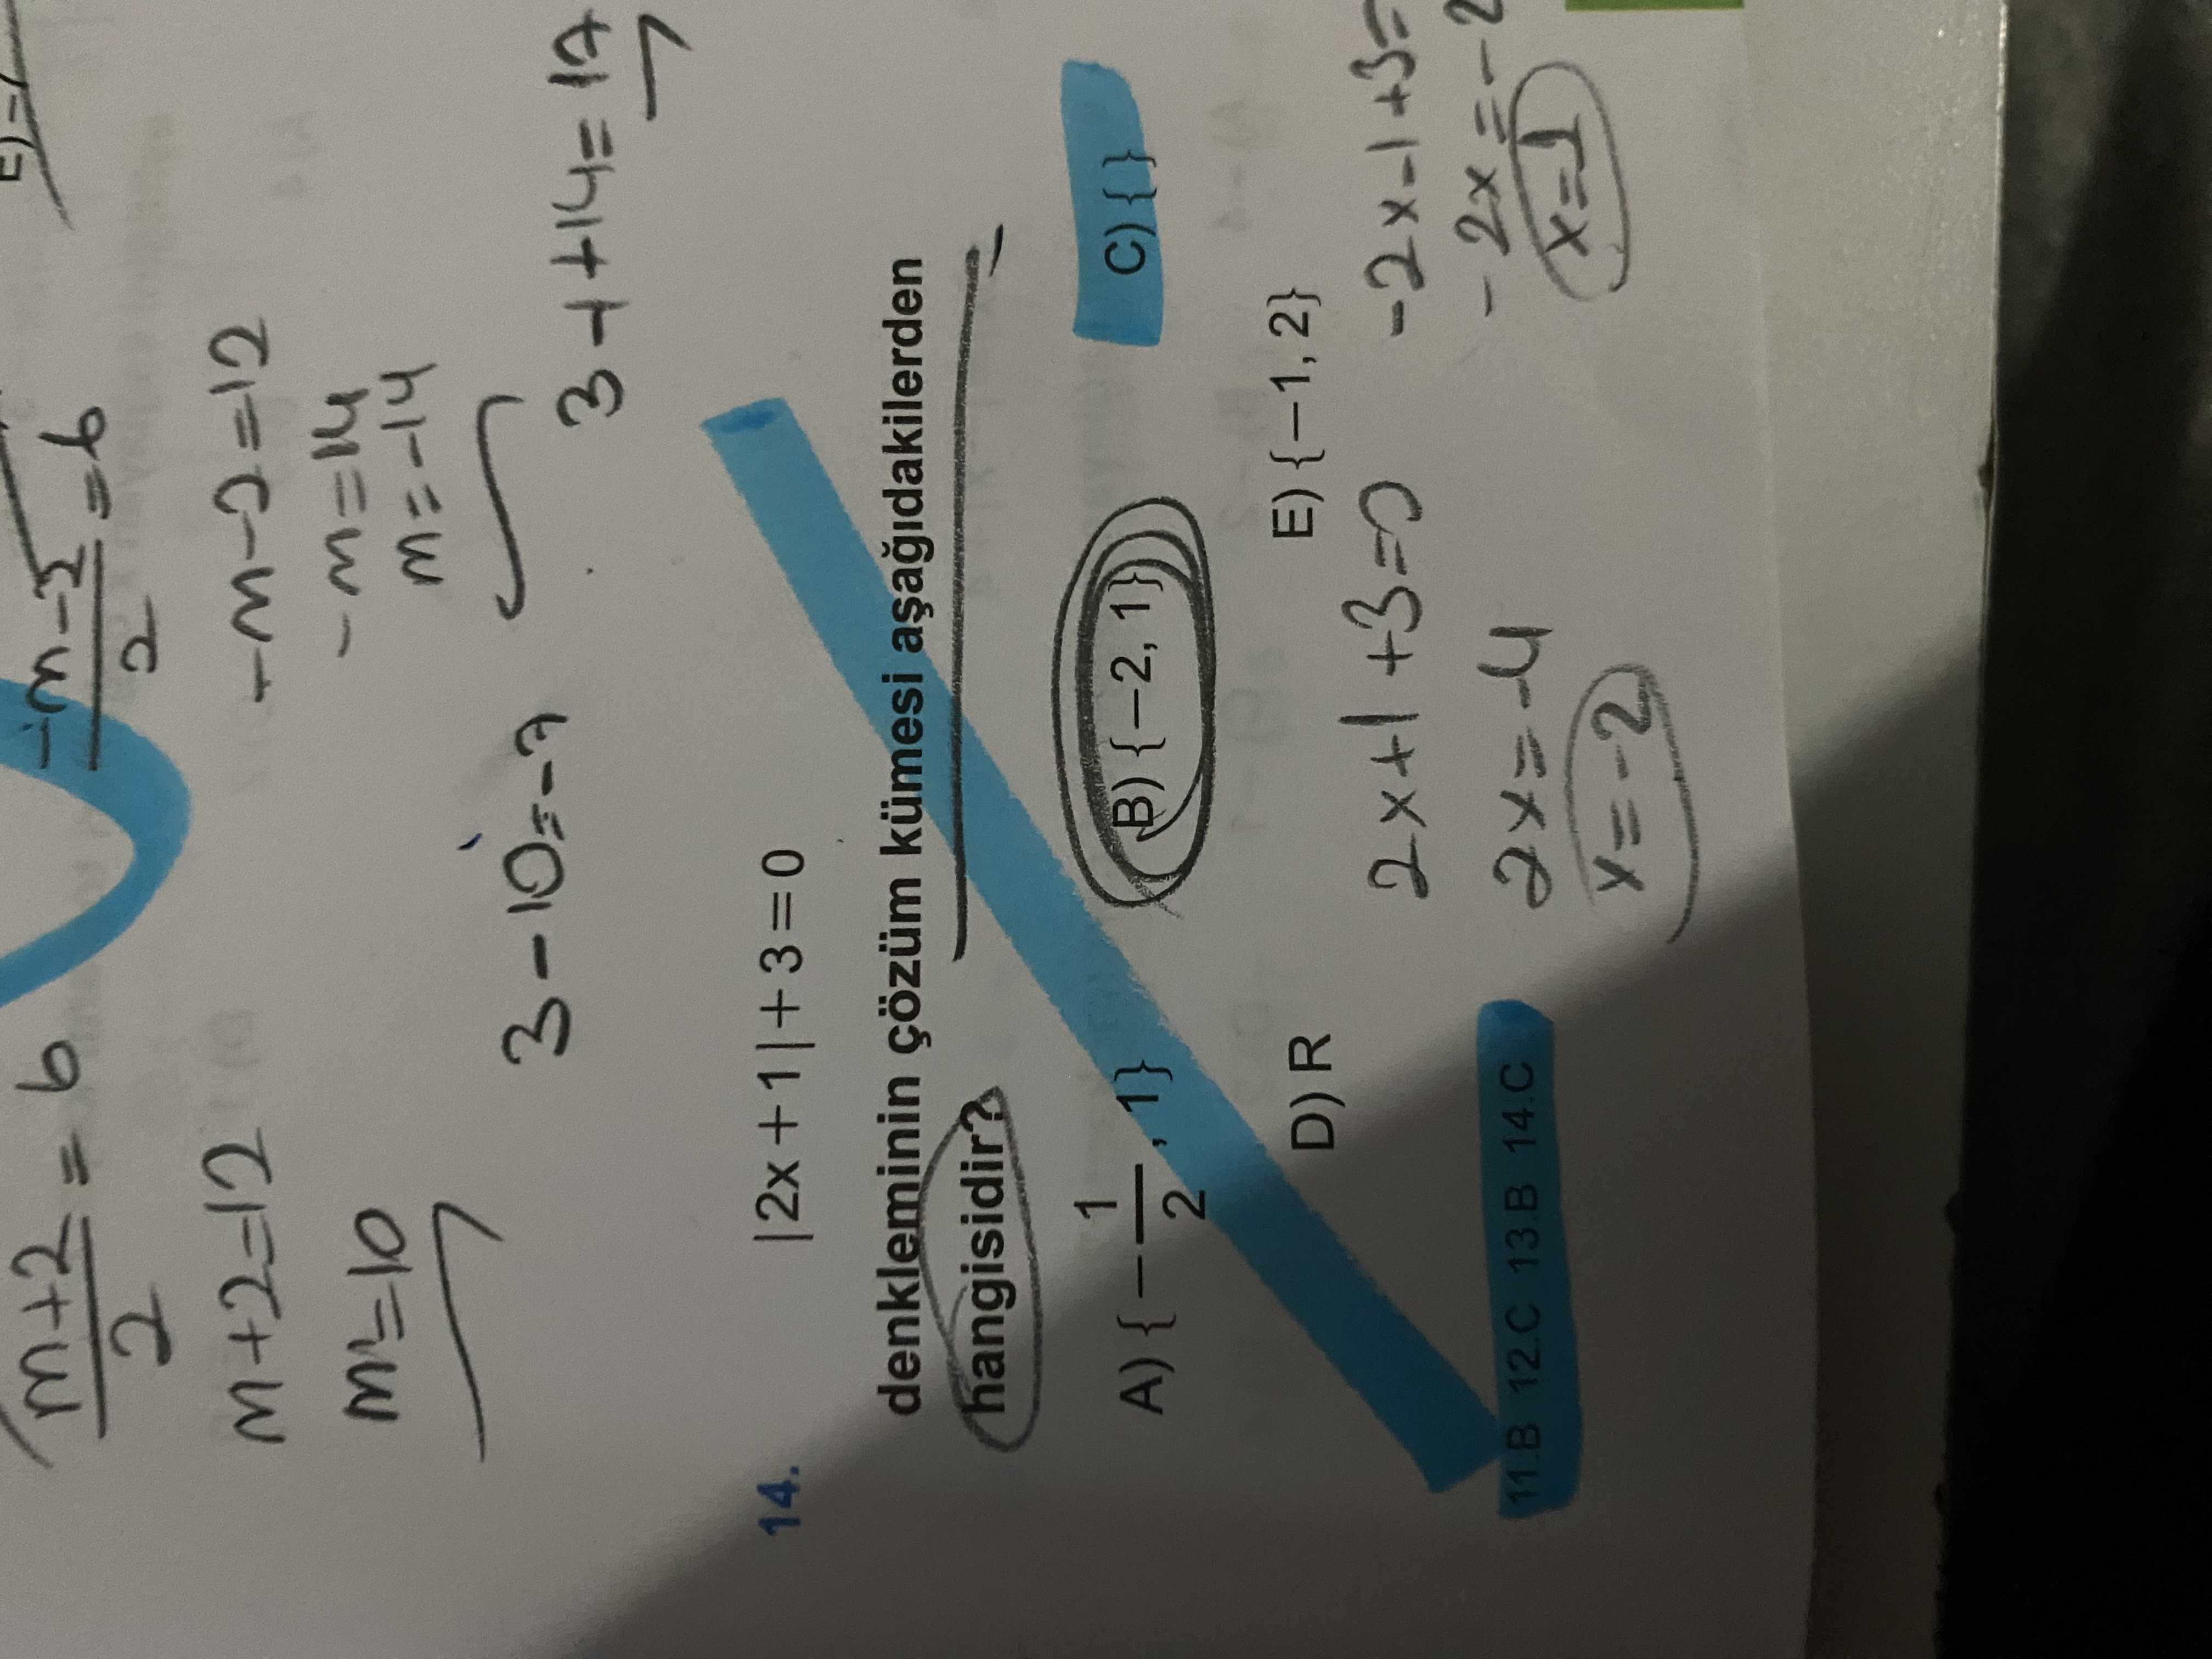 m+2/2 = 6
-m-2/2 = 6
m+2=12
-m-2=12
m=10
-m=14
m=-14
3-10=-7
3+14=17
14. |2x + 1| + 3 = 0
denkleminin çözüm kümesi aşağıdakilerden
hangisidir?
A) {-1/2, 1} B) {-2, 1} C) { }
D) R E) {-1, 2}
2x+1+3=0
-2x-1+3=
2x=-4
-2x=-2
x=-2
x=1
11.B 12.C 13.B 14.C